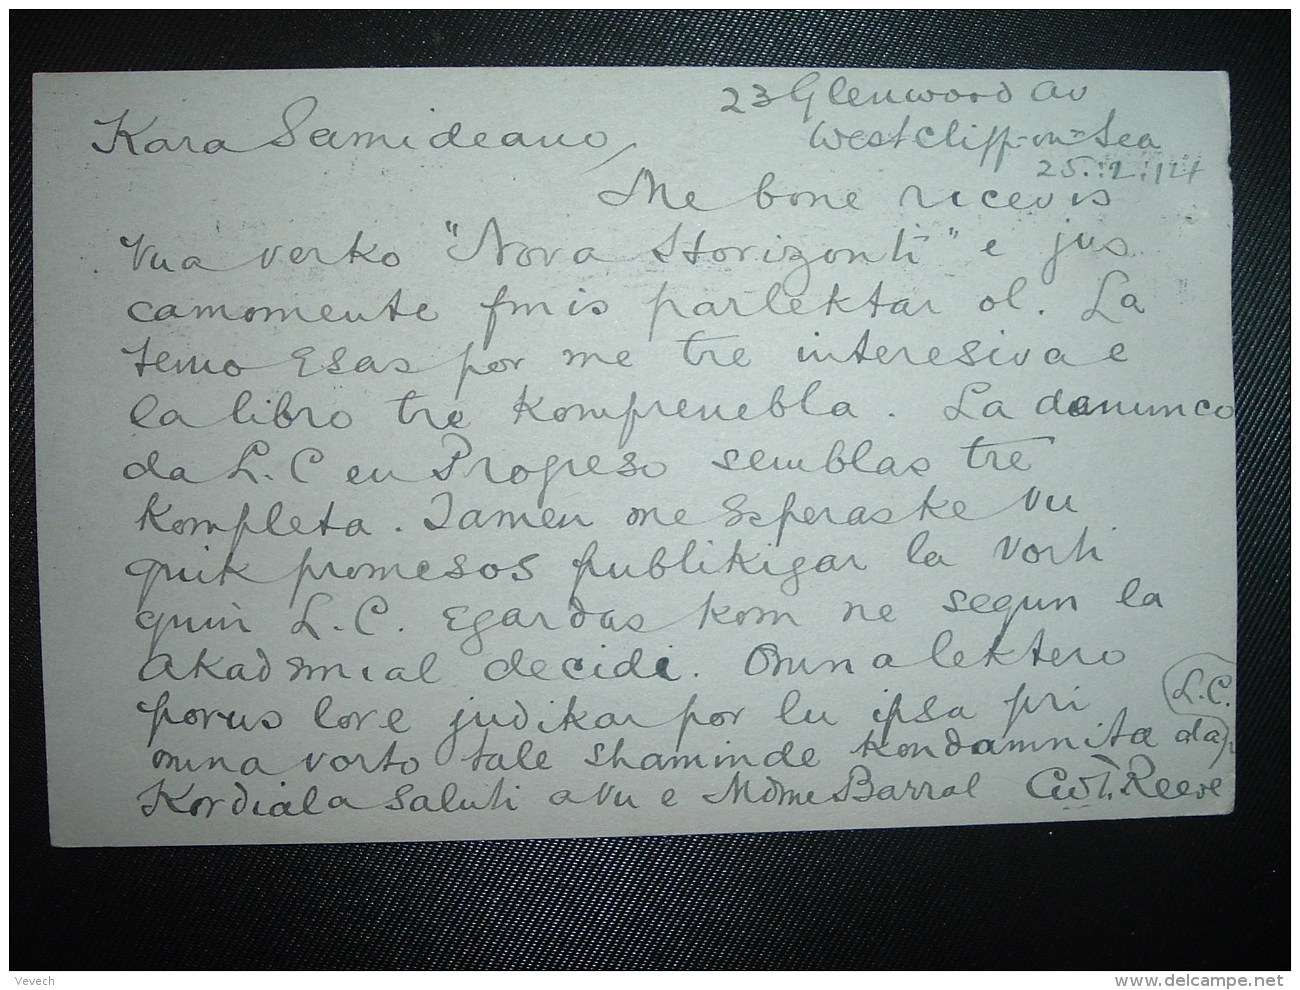 23 Glenwood Av
Westcliff-on-Sea
25.12.
Kara Samideano,
Me bone ricevis
Vua verko "Nova Horizonti" e jus
camomente finis parlektar ol. La
temo Esas por me tre interesiva e
la libro tre komprenebla. La denunco
da L.C en Progreso semblas tre
kompleta. Tamen me Esperas ke Vu
quik promesos publikigar la vorti
quin L.C. Egardas kom ne segun la
akademial decidi. Omna lektero
povus lore judikar por lu ipsa pri
omna vorto tale shaminde kondamnita da L.C.
Kordiala saluti a vu e Mdme Barral C.W.T. Reeve
Vevech
www.delcampe.net